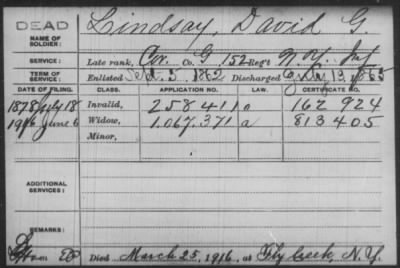 DEAD
Lindsay, David G.
NAME OF SOLDIER:
SERVICE: Late rank, Cor. Co. G 152 Reg't N.Y. Inf
TERM OF SERVICE: Enlisted Sept. 3, 1862 Discharged July 13, 1865
DATE OF FILING. CLASS. APPLICATION NO. LAW. CERTIFICATE NO.
1878 July 18 Invalid, 258411 162 924
1916 June 6 Widow, 1.067.371 a 813405
Minor,
ADDITIONAL SERVICES:
REMARKS:
Died March 25, 1916, at Fly Creek, N.Y.